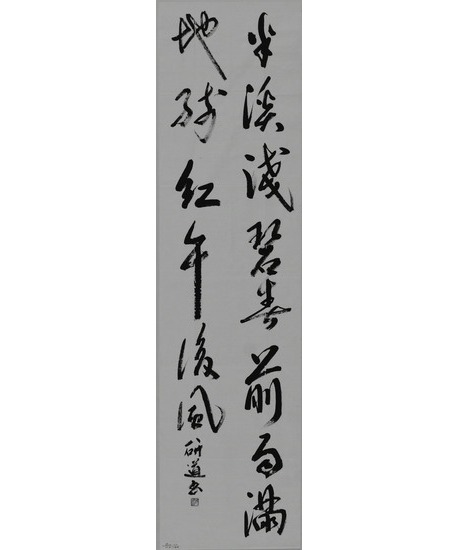 半溪淺碧春前雨滿
地殘紅午後風
研道書